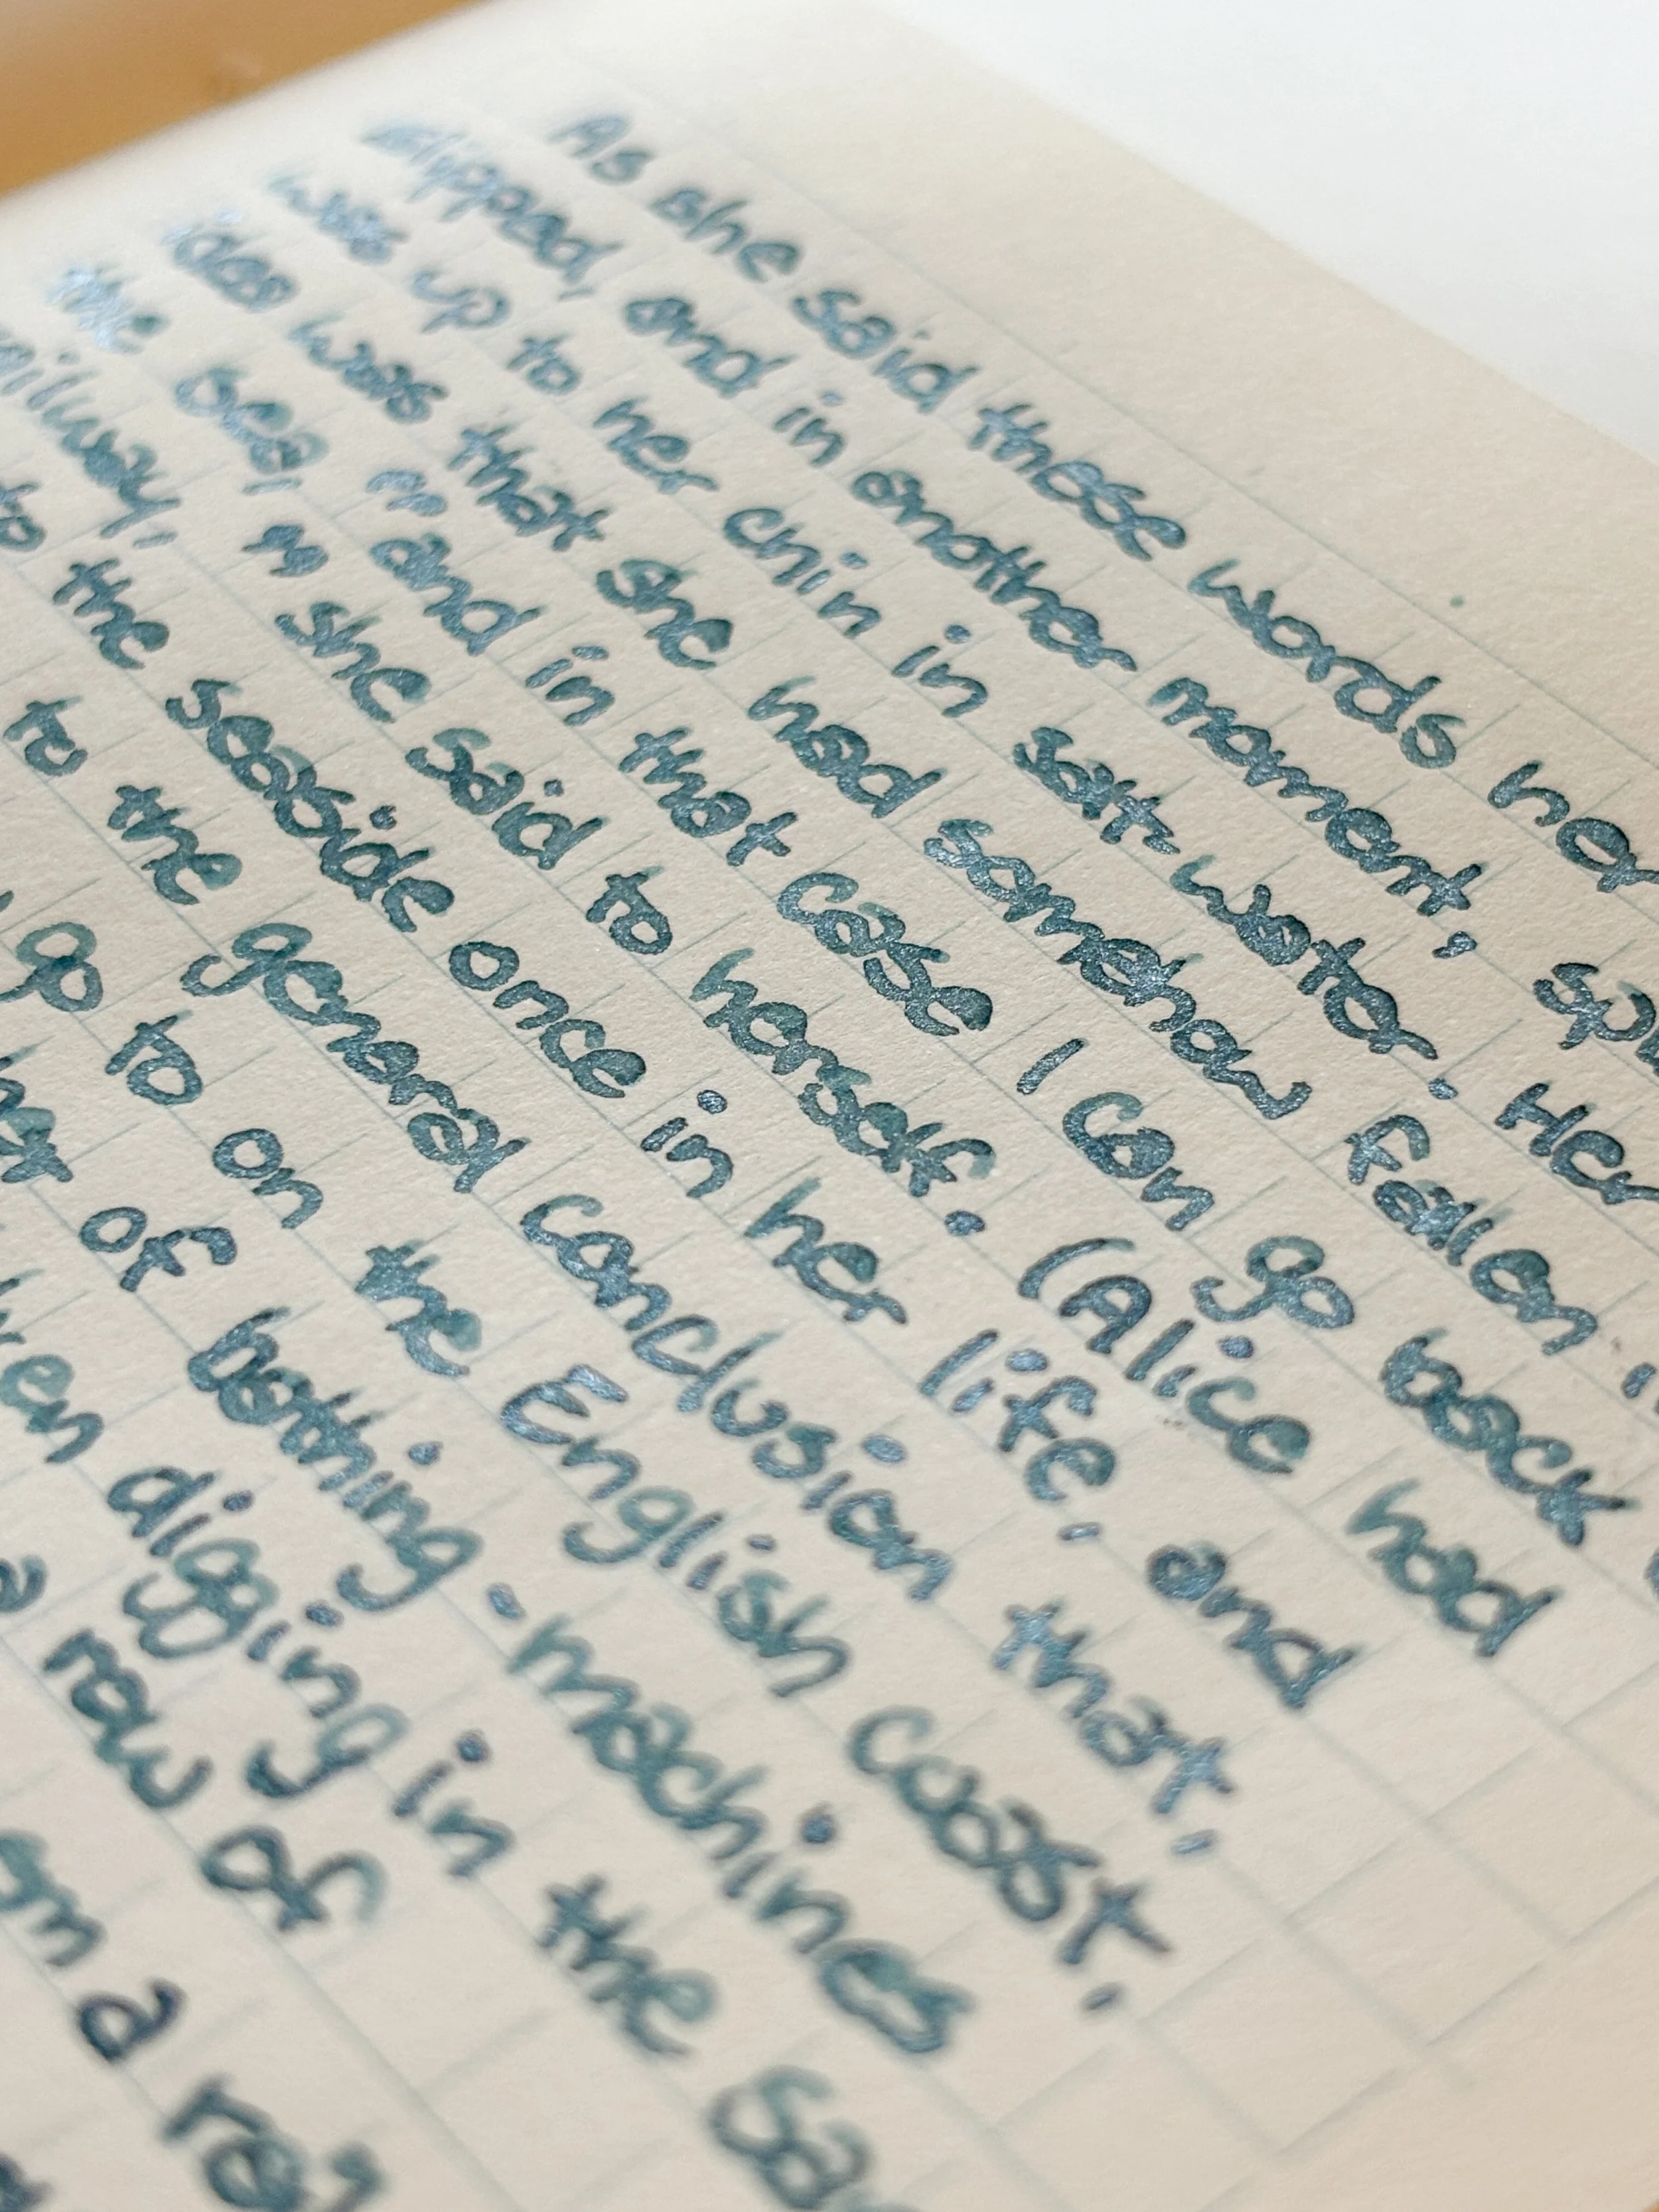 As she said these words her
slipped, and in another moment,
was up to her chin in salt-water. Her
idea was that she had somehow fallen
the sea, " and in that case I can go back
" she said to herself. (Alice had
to the seaside once in her life, and
to the general conclusion that,
go to on the English coast,
of bathing-machines
digging in the
a row of
a